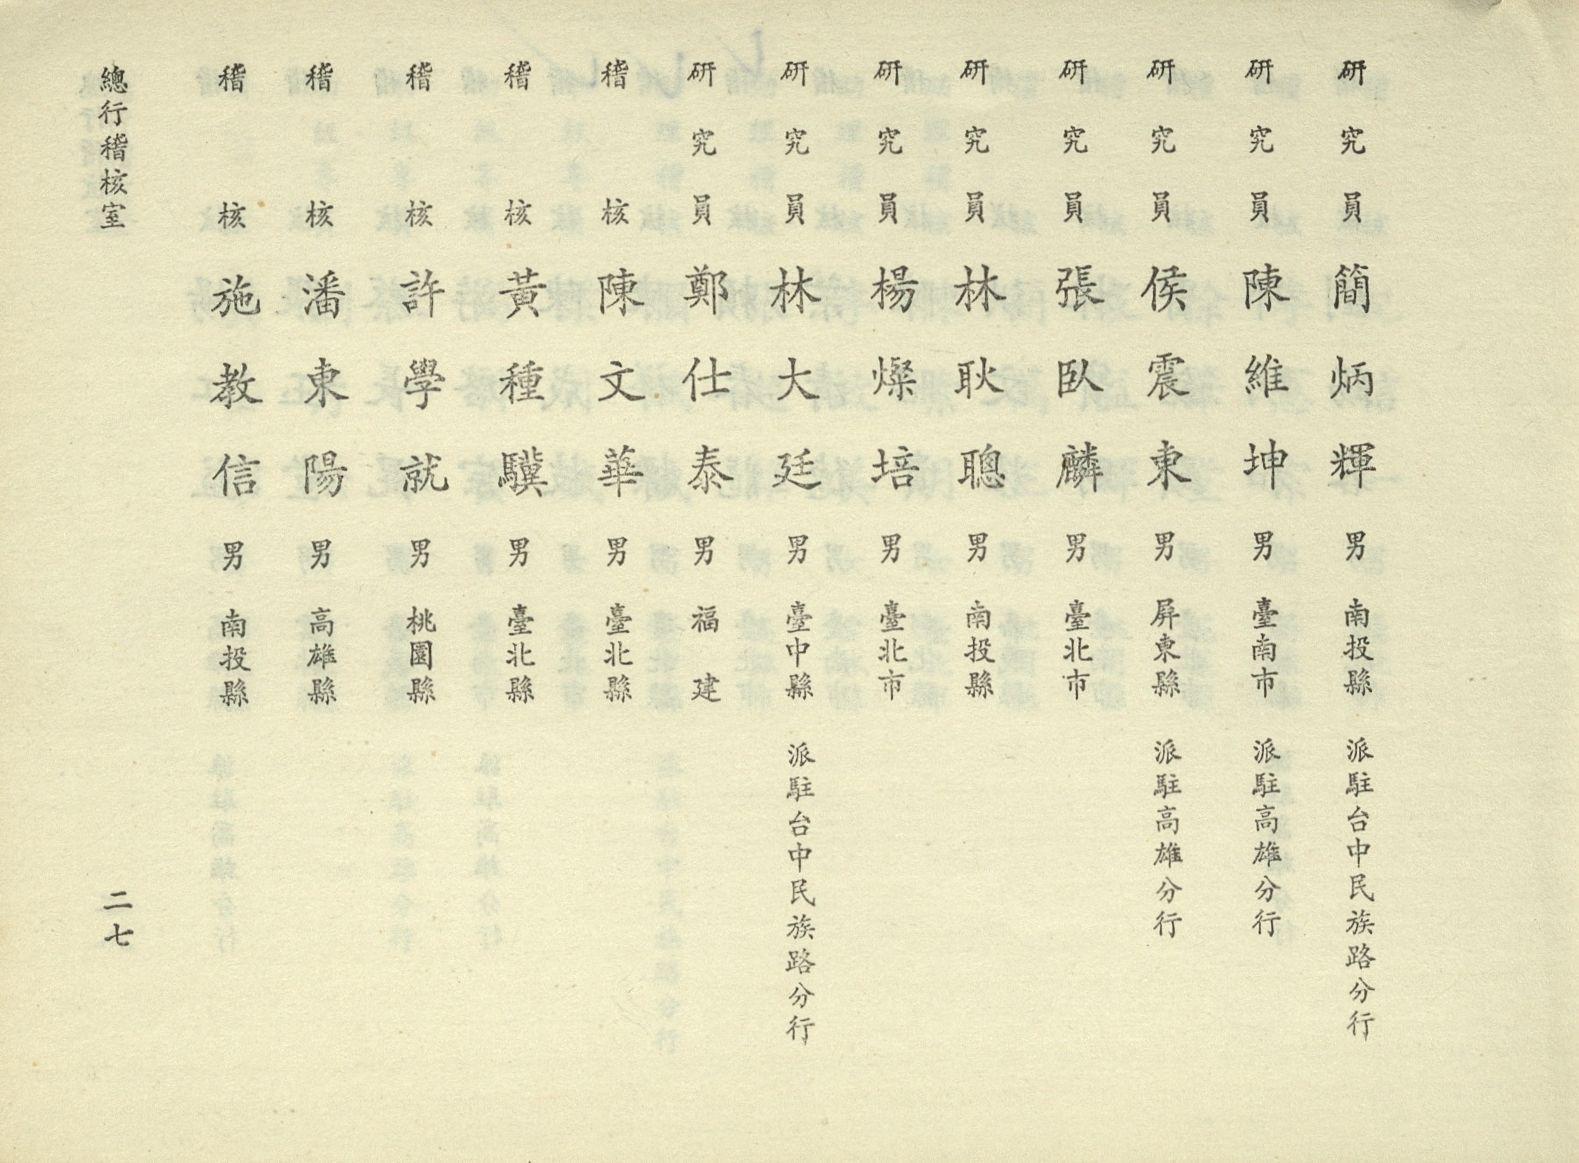 研究員 簡炳輝 男 南投縣 派駐台中民族路分行
研究員 陳維坤 男 臺南市 派駐高雄分行
研究員 侯震東 男 屏東縣 派駐高雄分行
研究員 張臥麟 男 臺北市
研究員 林耿聰 男 南投縣
研究員 楊燦培 男 臺北市
研究員 林大廷 男 臺中縣 派駐台中民族路分行
研究員 鄭仕泰 男 福建
稽核 陳文華 男 臺北縣
稽核 黃種驥 男 臺北縣
稽核 許學就 男 桃園縣
稽核 潘東陽 男 高雄縣
稽核 施教信 男 南投縣
總行稽核室 二七